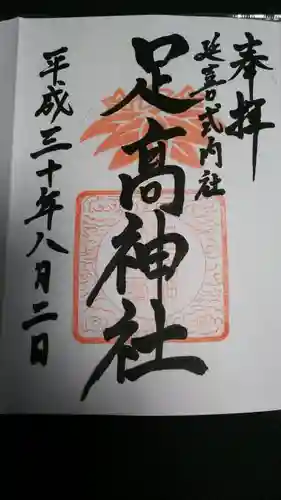 奉拝
延喜式内社
足高神社
平成三十年八月二日